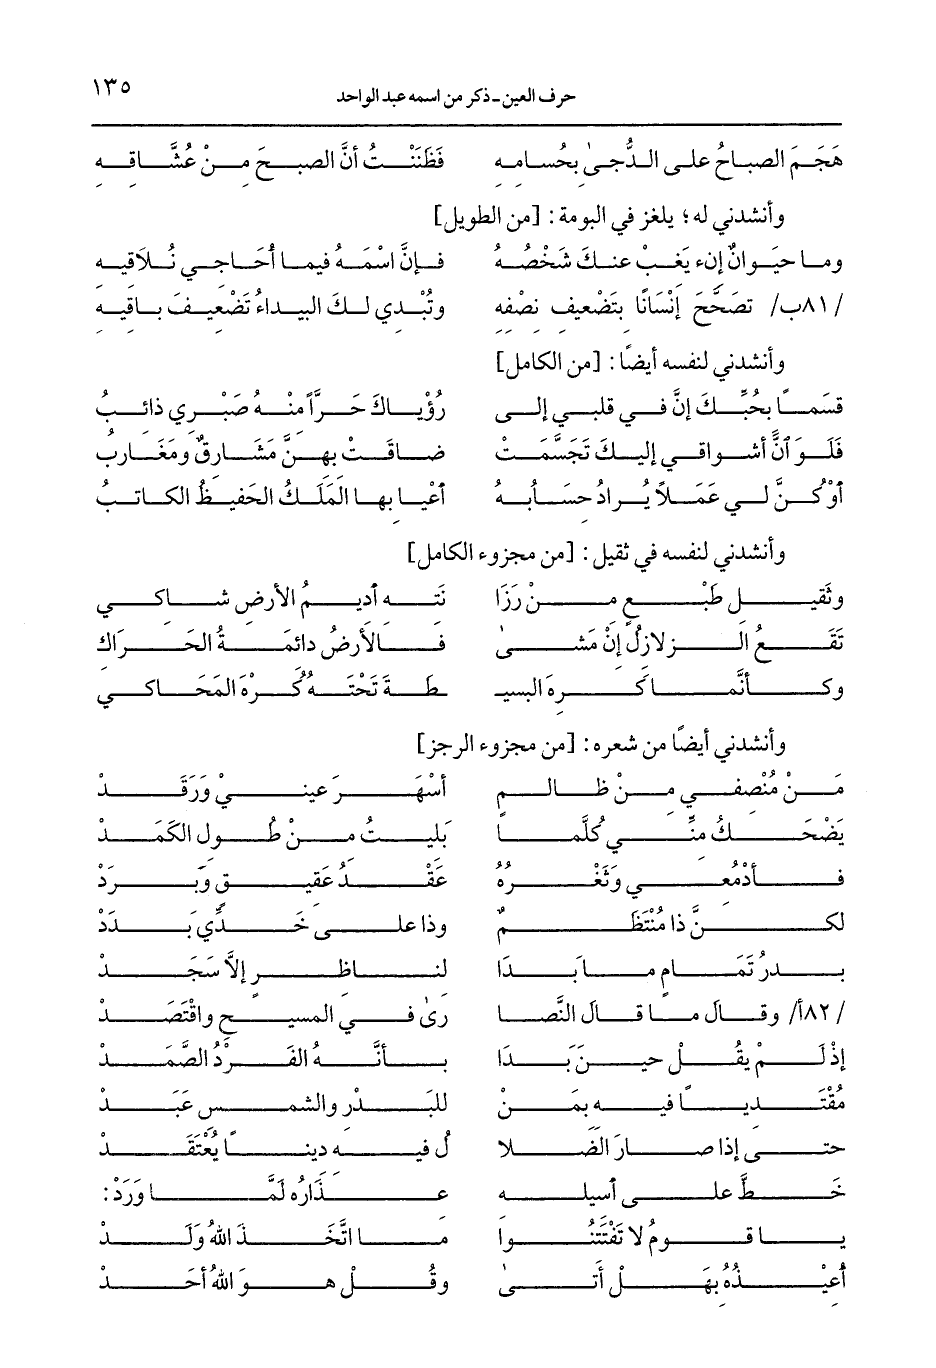 حرف العين - ذكر من اسمه عبد الواحد ١٣٥
هَجَمَ الصباحُ على الدُّجىٰ بحُسامه فَظَنَنْتُ أنَّ الصبحَ مِنْ عُشَّاقِه
وأنشدني له؛ يلغز في البومة: [من الطويل]
وما حيَوانٌ إنْ يَغبْ عنكَ شَخْصُهُ فإنَّ اسْمَهُ فيما أُحَاجي نُلاَقيه
/٨١ب/ تصَحَّحَ إنْسَانًا بتَضْعيف نصْفه وتُبْدي لكَ البيداءُ تَضْعيفَ باقيه
وأنشدني لنفسه أيضًا: [من الكامل]
قسَمًا بحُبِّكَ إنَّ في قلبي إلى رُؤْياكَ حَرًّا منْهُ صَبْري ذائبُ
فَلَو أنَّ أشواقي إليكَ تَجَسَّمَتْ ضاقَتْ بهنَّ مَشَارقٌ ومَغَاربُ
أوْ كُنَّ لي عَمَلاً يُرادُ حسَابُهُ أعْيا بها المَلَكُ الحَفيظُ الكاتبُ
وأنشدني لنفسه في ثقيل: [من مجزوء الكامل]
وثَقيل طَبْعٍ منْ رَزَا نَته أديمُ الأرض شاكي
تَقَعُ الزلازلُ إنْ مَشىٰ فالأرضُ دائمَةُ الحَرَاك
وكأنَّما كرهَ البسيـ ـطَةَ تَحْتَهُ كُرْهَ المَحَاكي
وأنشدني أيضًا من شعره: [من مجزوء الرجز]
مَنْ مُنْصفي منْ ظالمٍ أسْهَرَ عينيْ وَرَقَدْ
يَضْحَكُ منِّي كُلَّما بَليتُ منْ طُول الكَمَدْ
فأدْمُعي وثَغْرُهُ عَقْدُ عَقيقٍ وبَرَدْ
لكنَّ ذا مُنْتَظَمٌ وذا على خَدِّي بَدَدْ
بدرُ تَمَامٍ ما بَدَا لناظرٍ إلاَّ سَجَدْ
/٨٢أ/ وقالَ ما قالَ النَّصا رىٰ في المسيح واقْتَصَدْ
إذْ لَمْ يقُلْ حينَ بَدَا بأنَّهُ الفَرْدُ الصَّمَدْ
مُقْتَديًا فيه بمَنْ للبَدْر والشمس عَبَدْ
حتى إذا صارَ الضَّلا لُ فيه دينًا يُعْتَقَدْ
خَطَّ على أسيله عذَارُه لَمَّا وَرَدْ:
يا قومُ لا تَفْتَتنُوا ما اتَّخَذَ اللهُ وَلَدْ
أُعيْذُهُ بهَلْ أتىٰ وقُلْ هوَ اللهُ أحَدْ